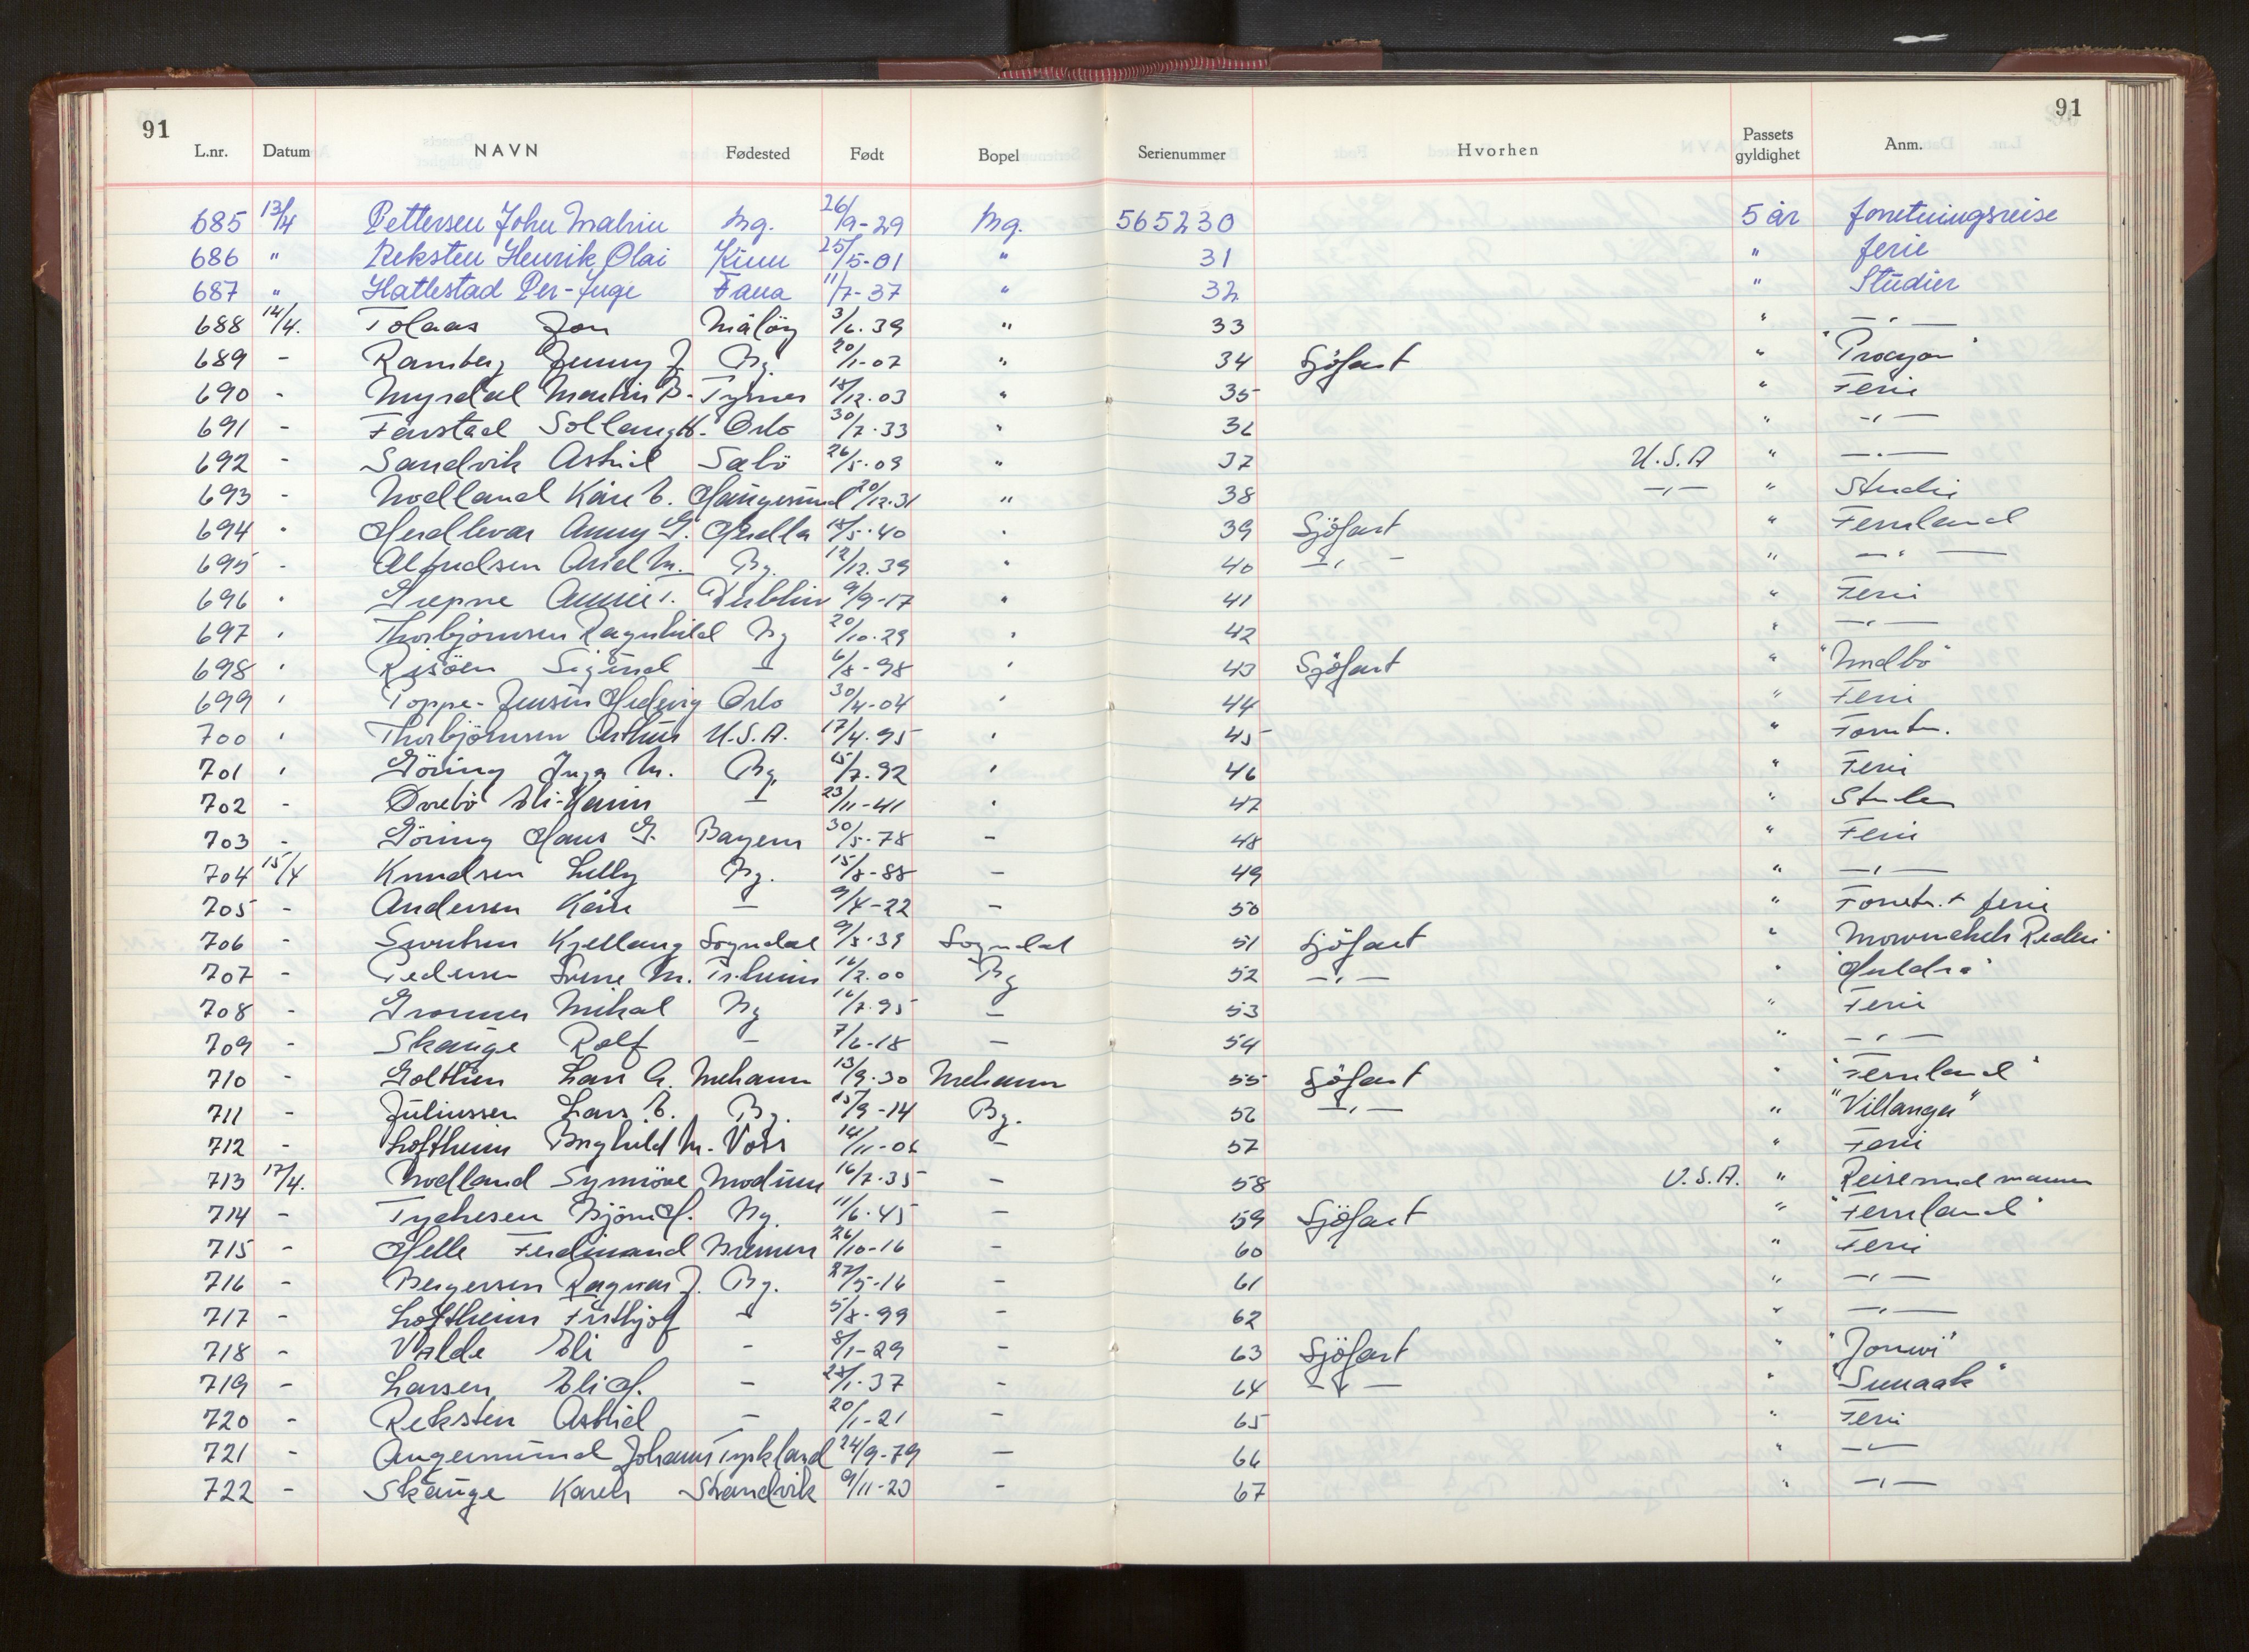 91 91
L.nr. Datum NAVN Fødested Født Bopel Serienummer Hvorhen Passets gyldighet Anm.
685 13/4 Pettersen John Malvin Bg. 26/9-29 Bg. 565230 5 år forretningsreise
686 " Reksten Henrik Olai Kinn 25/5-01 " 31 " ferie
687 " Hatlestad Per-Inge Fana 11/7-37 " 32 " Studier
688 14/4. Tolaas Jon Måløy 3/6.39 " 33 " — " —
689 - Ramberg Jenny J. Bg. 20/1-07 " 34 Sjöfart " "Procyon"
690 - Myrdal Martin B. 18/12.03 " 35 " Ferie
691 - Oslo 30/7.33 " 36 " - " -
692 - Sandvik Astrid Sæbö 26/5.09 " 37 U.S.A " — " —
693 - Modland Kåre E. Haugesund 20/12.31 " 38 - " - " Studie
694 " Herdlevær Anny G. Herdla 18/5.40 " 39 Sjöfart " Fernland
695 - Bg. 12/12.39 " 40 - " - " — " —
696 " Dublin 9/9-17 " 41 " Ferie
697 " Thorbjörnsen Ragnhild Bg 20/10.29 " 42 " — " —
698 " Risöen Sigurd — 6/8-98 " 43 Sjöfart "
699 " Toppe-Jensen Hedvig Oslo 30/4-04 " 44 " Ferie
700 " Thorbjörnsen Arthur U.S.A. 17/4.95 " 45 " Forretn.
701 " Göring Inga M. Bg. 15/7.92 " 46 " Ferie
702 - Övrebö Eli-Karin — 23/11-41 " 47 "
703 - Göring Hans G. Bayern 30/5-78 - 48 " Ferie
704 15/4 Knudsen Lilly Bg. 15/8-88 — 49 " — " —
705 - Andersen Kåre — 9/4-22 — 50 " Forretn. + ferie
706 - Kjellaug Sogndal 9/8.39 Sogndal 51 Sjöfart " Mowinckels Rederi
707 - Pedersen Sverre M. 16/2.00 Bg 52 — " — " "Huldra"
708 - Mikal Bg 16/7.95 — 53 " Ferie
709 - Skauge Rolf — 7/6-18 — 54 " — " —
710 - Lars A. Mehamn 13/9.30 Mehamn 55 Sjöfart " "Fernland"
711 - Juliussen Lars E. Bg. 15/9-14 Bg. 56 — " — " "Villanger"
712 - Loftheim Borghild M. Voss 14/11-06 — 57 " Ferie
713 17/4. Modland Synnöve Modum 16/7.35 — 58 U.S.A. " Reise med mannen
714 - Tychesen Björn H. Bg. 11/6.45 — 59 Sjöfart " "Fernland"
715 - Helle Ferdinand Bremen 26/10-16 - 60 " Ferie
716 - Bergersen Ragnar J. Bg. 27/5-16 - 61 " — " —
717 - Loftheim Frithjof — 5/8-99 - 62 " — " —
718 - Valde Eli - 8/1-29 - 63 Sjöfart "
719 - Larsen, Eli H. — 28/1.37 - 64 - " - " "Sunaak"
720 - Reksten Astrid — 20/1-21 — 65 " Ferie
721 - Angermund Johann Tyskland 24/9-79 — 66 " — " —
722 - Skauge Karen Strandvik 9/11-23 - 67 " — " —